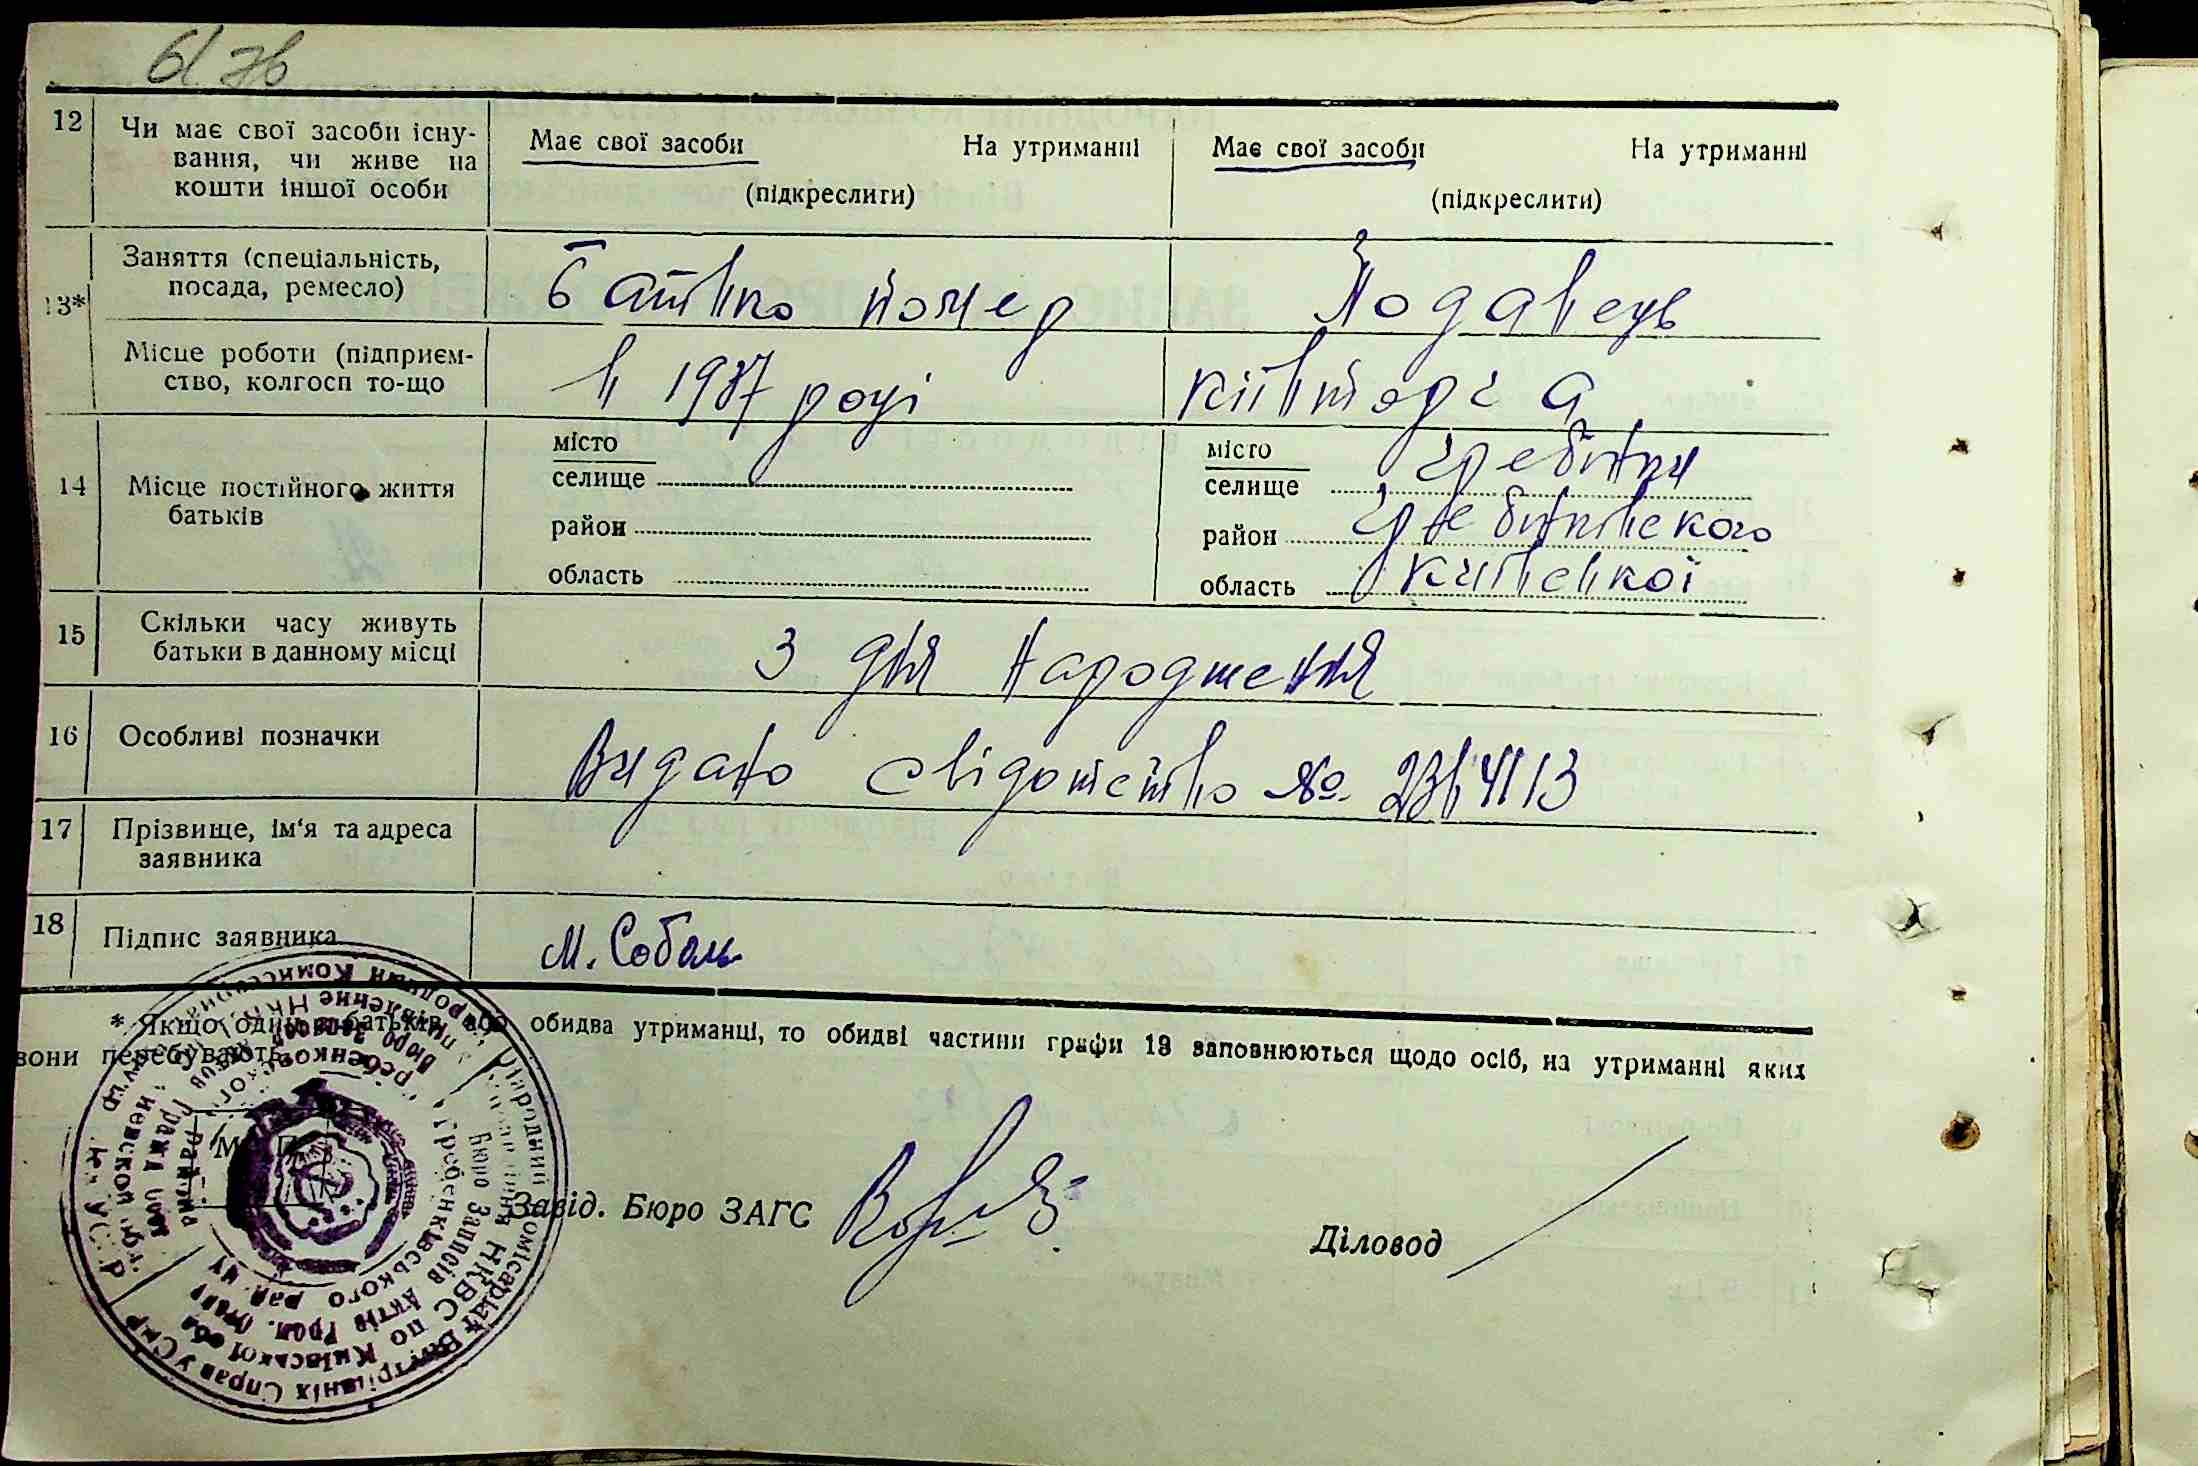 61 зв
12 Чи має свої засоби існу-
вання, чи живе на
кошти іншої особи
Має свої засоби На утриманні
(підкреслити)
Має свої засоби На утриманні
(підкреслити)
13* Заняття (спеціальність,
посада, ремесло)
Батько помер
Місце роботи (підприєм-
ство, колгосп то-що
в 1937 році
14 Місце постійного життя
батьків
місто
селище
район
область
місто
селище Гребінки
район Гребінківського
область Київської
15 Скільки часу живуть
батьки в данному місці
З дня народження
16 Особливі позначки
Видано свідотство №
17 Прізвище, ім'я та адреса
заявника
18 Підпис заявника
М. Соболь
* Якщо один з батьків або обидва утриманці, то обидві частини графи 13 заповнюються щодо осіб, на утриманні яких
вони перебувають.
М. П.
Завід. Бюро ЗАГС
Діловод